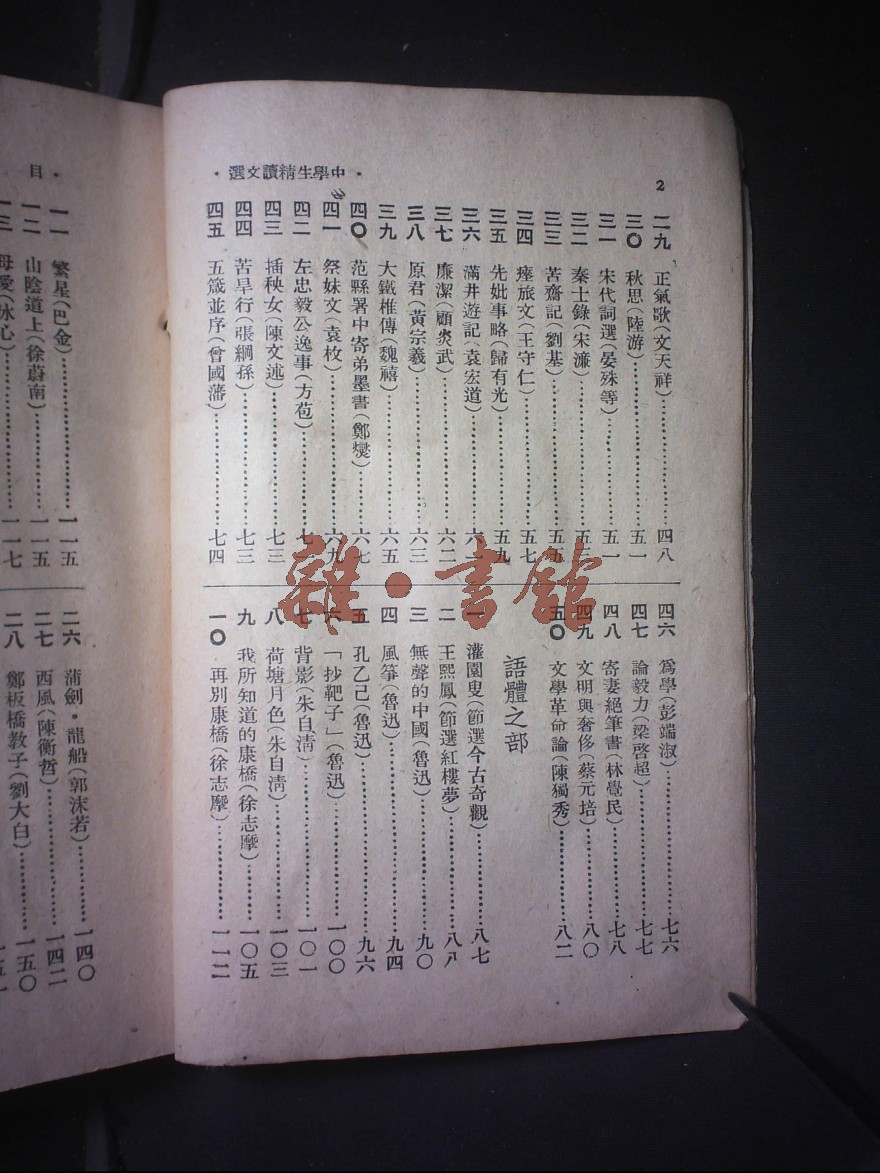 中學生精讀文選
2
二九 正氣歌(文天祥)……四八
三〇 秋思(陸游)……五一
三一 宋代詞選(晏殊等)……五一
三二 秦士錄(宋濂)……五三
三三 苦齋記(劉基)……五五
三四 瘞旅文(王守仁)……五七
三五 先妣事略(歸有光)……五九
三六 滿井遊記(袁宏道)……六
三七 廉潔(顧炎武)……六二
三八 原君(黃宗羲)……六三
三九 大鐵椎傳(魏禧)……六五
四〇 范縣署中寄弟墨書(鄭燮)……六七
四一 祭妹文(袁枚)……六九
四二 左忠毅公逸事(方苞)……七
四三 插秧女(陳文述)……七三
四四 苦旱行(張綱孫)……七三
四五 五箴並序(曾國藩)……七四
四六 為學(彭端淑)……七六
四七 論毅力(梁啓超)……七七
四八 寄妻絕筆書(林覺民)……七八
四九 文明與奢侈(蔡元培)……八〇
五〇 文學革命論(陳獨秀)……八二
語體之部
一 灌園叟(節選今古奇觀)……八七
二 王熙鳳(節選紅樓夢)……八八
三 無聲的中國(魯迅)……九〇
四 風箏(魯迅)……九四
五 孔乙己(魯迅)……九六
六 「抄靶子」(魯迅)……一〇〇
七 背影(朱自清)……一〇一
八 荷塘月色(朱自清)……一〇三
九 我所知道的康橋(徐志摩)……一〇五
一〇 再別康橋(徐志摩)……一一二
目
一一 繁星(巴金)……一一五
一二 山陰道上(徐蔚南)……一一五
一三 母愛(冰心)……一一七
二六 蒲劍・龍船(郭沫若)……一四〇
二七 西風(陳衡哲)……一四二
二八 鄭板橋教子(劉大白)……一五〇
雜・書館